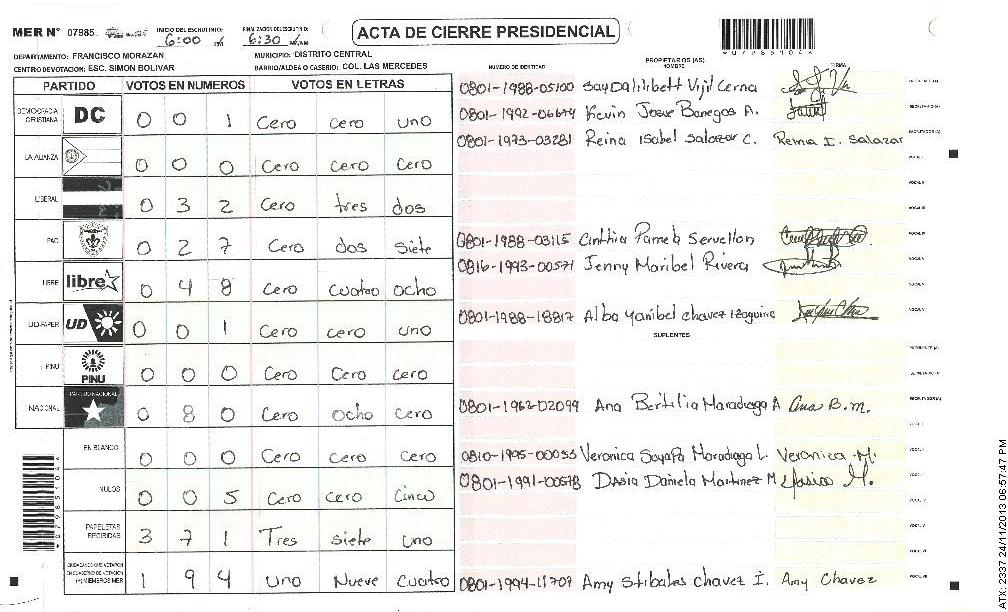 MER N° 07985
INICIO DEL ESCRUTINIO: 6:00
FINALIZACION DE ESCRUTINIO: 6:30
ACTA DE CIERRE PRESIDENCIAL
DEPARTAMENTO: FRANCISCO MORAZAN
MUNICIPIO: DISTRITO CENTRAL
CENTRO DE VOTACION: ESC. SIMON BOLIVAR
BARRIO/ALDEA O CASERIO: COL. LAS MERCEDES
PARTIDO VOTOS EN NUMEROS VOTOS EN LETRAS
DEMOCRACIA CRISTIANA DC 0 0 1 Cero cero uno
LA ALIANZA 0 0 0 Cero Cero Cero
LIBERAL 0 3 2 Cero tres dos
PAC 0 2 7 Cero dos siete
LIBRE libre 0 4 8 Cero cuatro ocho
UD-FAPER UD 0 0 1 Cero cero uno
PINU PINU 0 0 0 Cero Cero cero
NACIONAL PARTIDO NACIONAL 0 8 0 Cero ocho cero
EN BLANCO 0 0 0 Cero cero cero
NULOS 0 0 5 Cero cero cinco
PAPELETAS RECIBIDAS 3 7 1 Tres siete uno
CIUDADANOS QUE VOTARON EN CUADERNO DE VOTACION (+) MIEMBROS MER 1 9 4 uno Nueve cuatro
NUMERO DE IDENTIDAD
PROPIETARIOS (AS)
NOMBRE
FIRMA
0801-1988-05100 Vijil Cerna
Kevin Josue Banegas A.
0801-1973-03281 Reina Isabel Salazar C. Reina I. Salazar
0801-1988-03115 Cinthia Pamela Servellon
0816-1993-00571 Jenny Maribel Rivera
0801-1988-18817 Alba Yanibel chavez Izaguirre
SUPLENTES
0801-1962-02099 Ana Bertilia Maradiaga A Ana B.M.
Veronica Maradiaga L. Veronica M.
Daniela Martinez M
Amy chavez I. Amy Chavez
ATX: 2337 24/11/2013 06:57:47 PM